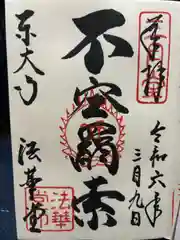 奉拝
令和六年
三月九日
不空羂索
東大寺
法華堂
法華堂印